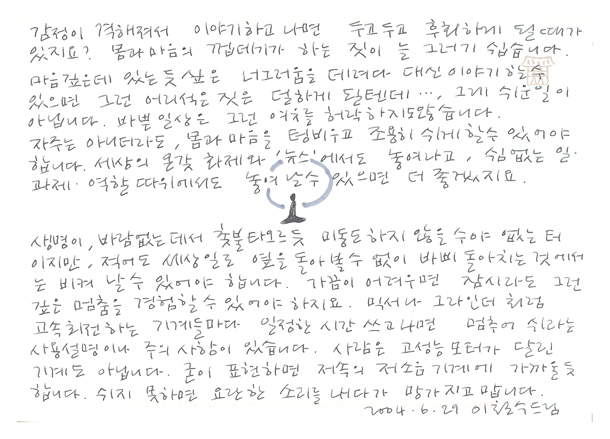 감정이 격해져서 이야기하고 나면 두고두고 후회하게 될 때가
있지요? 몸과 마음의 껍데기가 하는 짓이 늘 그러기 쉽습니다.
마음 깊은데 있는 듯 싶은 너그러움을 데려다 대신 이야기 할 수
있으면 그런 어리석은 짓은 덜하게 될텐데…, 그게 쉬운 일이
아닙니다. 바쁜 일상은 그런 여유를 허락하지도 않습니다.
자주는 아니더라도, 몸과 마음을 텅비우고 조용히 쉬게 할 수 있어야
합니다. 세상의 온갖 화제와 '뉴스'에서도 놓여나고, 쉼없는 일·
과제·역할 따위에서도 놓여 날 수 있으면 더 좋겠지요.
생명이, 바람없는 데서 촛불 타오르듯 미동도 하지 않을 수야 없는 터
이지만, 적어도 세상일로 옆을 돌아볼 수 없이 바삐 돌아치는 것에서
는 비켜 날 수 있어야 합니다. 가끔이 어려우면 잠시라도 그런
깊은 멈춤을 경험할 수 있어야 하지요. 믹서나 그라인더 처럼
고속회전하는 기계들마다 일정한 시간 쓰고나면 멈추어 쉬라는
사용설명이나 주의 사항이 있습니다. 사람은 고성능 모터가 달린
기계도 아닙니다. 굳이 표현하면 저속의 저소음 기계에 가까울 듯
합니다. 쉬지 못하면 요란한 소리를 내다가 망가지고 맙니다.
2004.6.29 이철수 드림